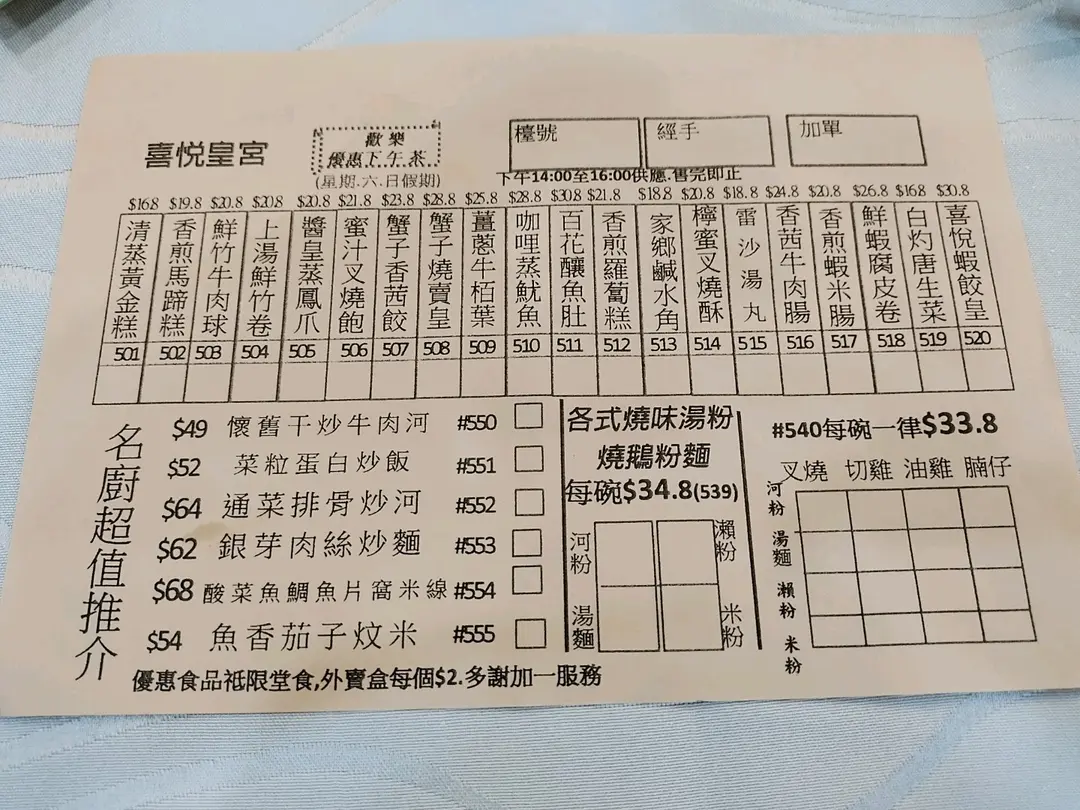 喜悦皇宮
歡樂
優惠下午茶
(星期.六.日假期)
檯號
經手
加單
下午14:00至16:00供應.售完即止
$16.8 $19.8 $20.8 $20.8 $20.8 $21.8 $23.8 $28.8 $25.8 $28.8 $30.8 $21.8 $18.8 $20.8 $18.8 $24.8 $20.8 $26.8 $16.8 $30.8
清蒸黃金糕
香煎馬蹄糕
鮮竹牛肉球
上湯鮮竹卷
醬皇蒸鳳爪
蜜汁叉燒飽
蟹子香茜餃
蟹子燒賣皇
薑蔥牛栢葉
咖哩蒸魷魚
百花釀魚肚
香煎羅蔔糕
家鄉鹹水角
檸蜜叉燒酥
雷沙湯丸
香茜牛肉腸
香煎蝦米腸
鮮蝦腐皮卷
白灼唐生菜
喜悅蝦餃皇
501 502 503 504 505 506 507 508 509 510 511 512 513 514 515 516 517 518 519 520
名廚超值推介
$49 懷舊干炒牛肉河 #550
$52 菜粒蛋白炒飯 #551
$64 通菜排骨炒河 #552
$62 銀芽肉絲炒麵 #553
$68 酸菜魚鯛魚片窩米線 #554
$54 魚香茄子炆米 #555
各式燒味湯粉
燒鵝粉麵
每碗$34.8(539)
河粉
瀨粉
湯麵
米粉
#540每碗一律$33.8
叉燒 切雞 油雞 腩仔
河粉
湯麵
瀨粉
米粉
優惠食品祗限堂食,外賣盒每個$2.多謝加一服務